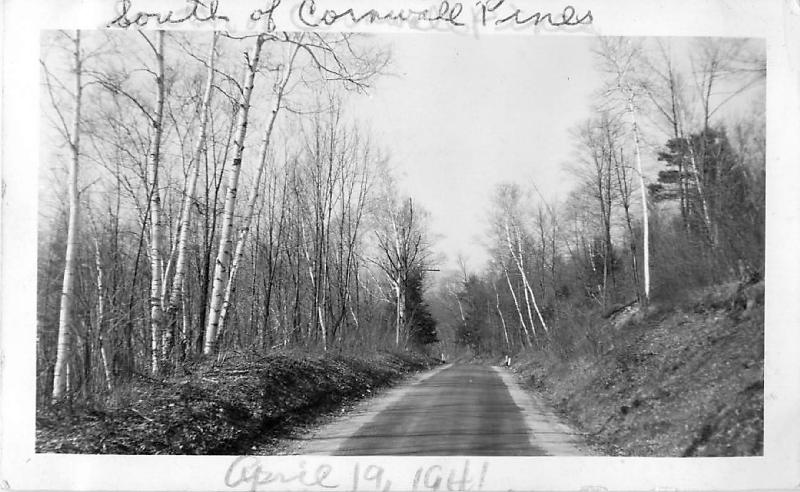 South of Cornwall Pines
April 19, 1941